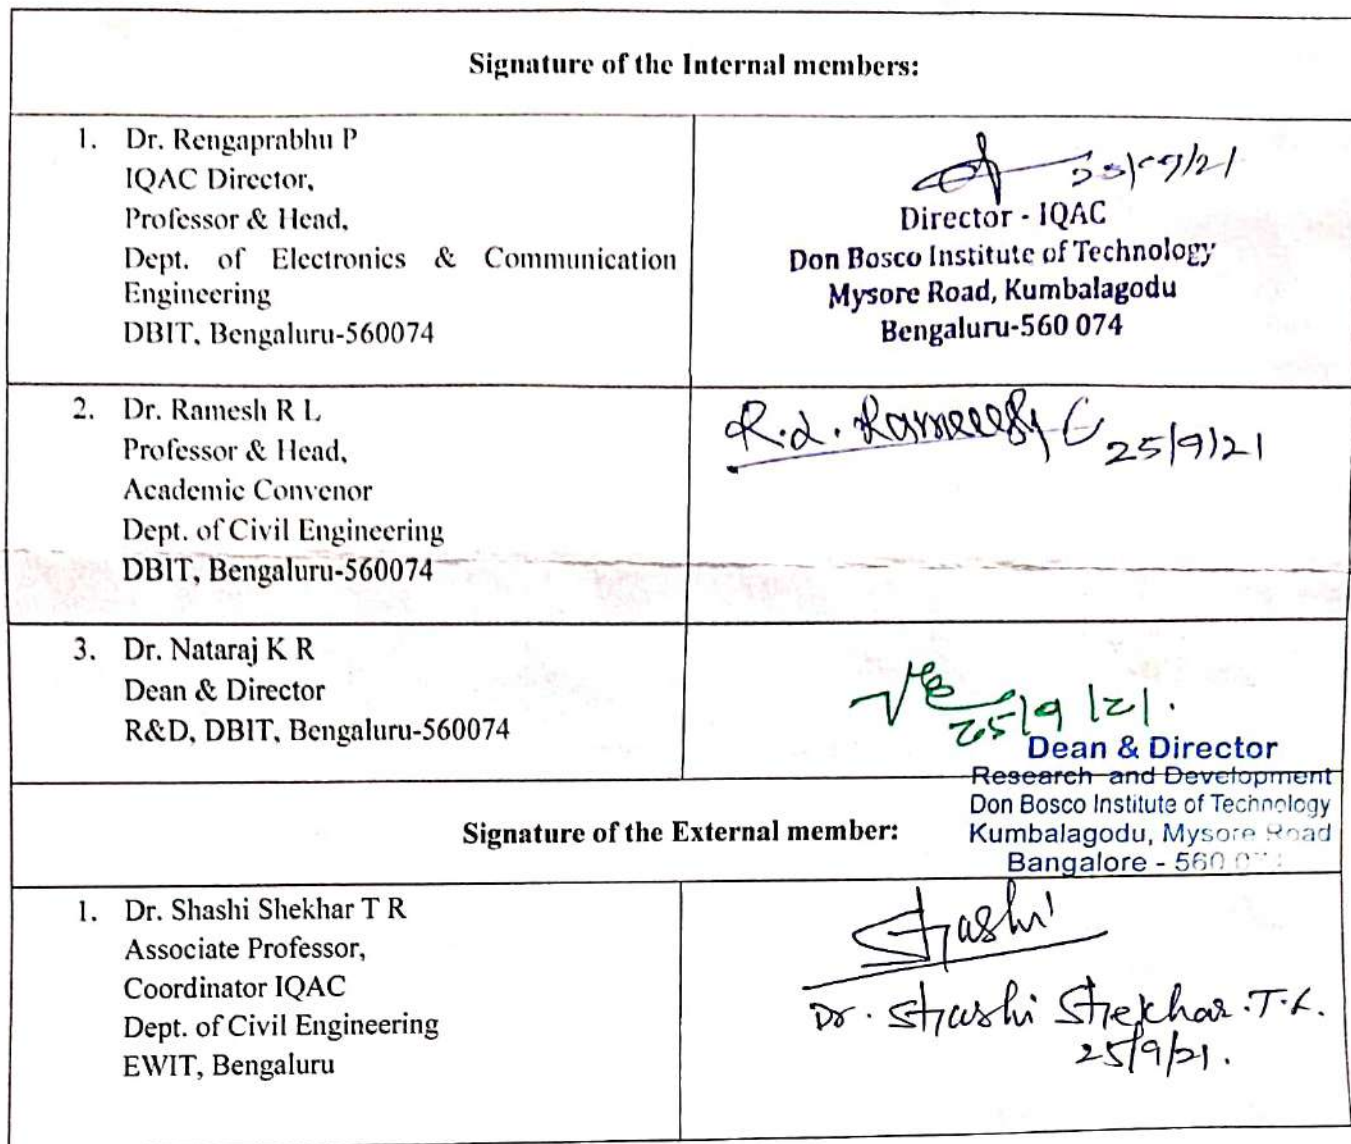 Signature of the Internal members:
1. Dr. Rengaprabhu P
IQAC Director,
Professor & Head,
Dept. of Electronics & Communication
Engineering
DBIT, Bengaluru-560074
/21
Director - IQAC
Don Bosco Institute of Technology
Mysore Road, Kumbalagodu
Bengaluru-560 074
2. Dr. Ramesh R L
Professor & Head,
Academic Convenor
Dept. of Civil Engineering
DBIT, Bengaluru-560074
R.L. Ramesh 25/9/21
3. Dr. Nataraj K R
Dean & Director
R&D, DBIT, Bengaluru-560074
25/9/21.
Dean & Director
Research and Development
Don Bosco Institute of Technology
Kumbalagodu, Mysore Road
Bangalore - 560 0
Signature of the External member:
1. Dr. Shashi Shekhar T R
Associate Professor,
Coordinator IQAC
Dept. of Civil Engineering
EWIT, Bengaluru
Shashi
Dr. Shashi Shekhar.T.R.
25/9/21.